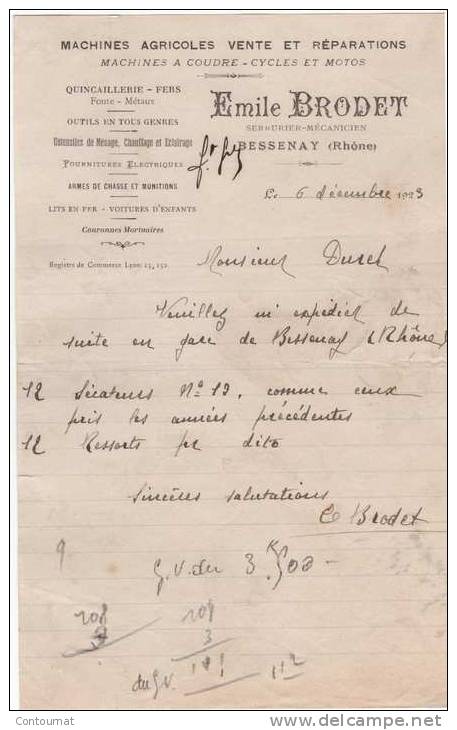 MACHINES AGRICOLES VENTE ET RÉPARATIONS
MACHINES A COUDRE - CYCLES ET MOTOS
QUINCAILLERIE - FERS
Fonte - Métaux
OUTILS EN TOUS GENRES
Ustensiles de Ménage, Chauffage et Eclairage
FOURNITURES ELECTRIQUES
ARMES DE CHASSE ET MUNITIONS
LITS EN FER - VOITURES D'ENFANTS
Couronnes Mortuaires
Registre de Commerce Lyon: 23,152
Emile BRODET
SERRURIER-MÉCANICIEN
BESSENAY (Rhône)
Le 6 décembre 1923
Monsieur
Veuillez m'expédier de
suite en gare de Bessenay (Rhône)
12 Sécateurs No 13, comme ceux
pris les années précédentes
12 Ressorts pr dito
Sincères salutations
E Brodet
9
G.V. du 3
109
3
du G.V. 112
© Contournat
www.delcampe.net